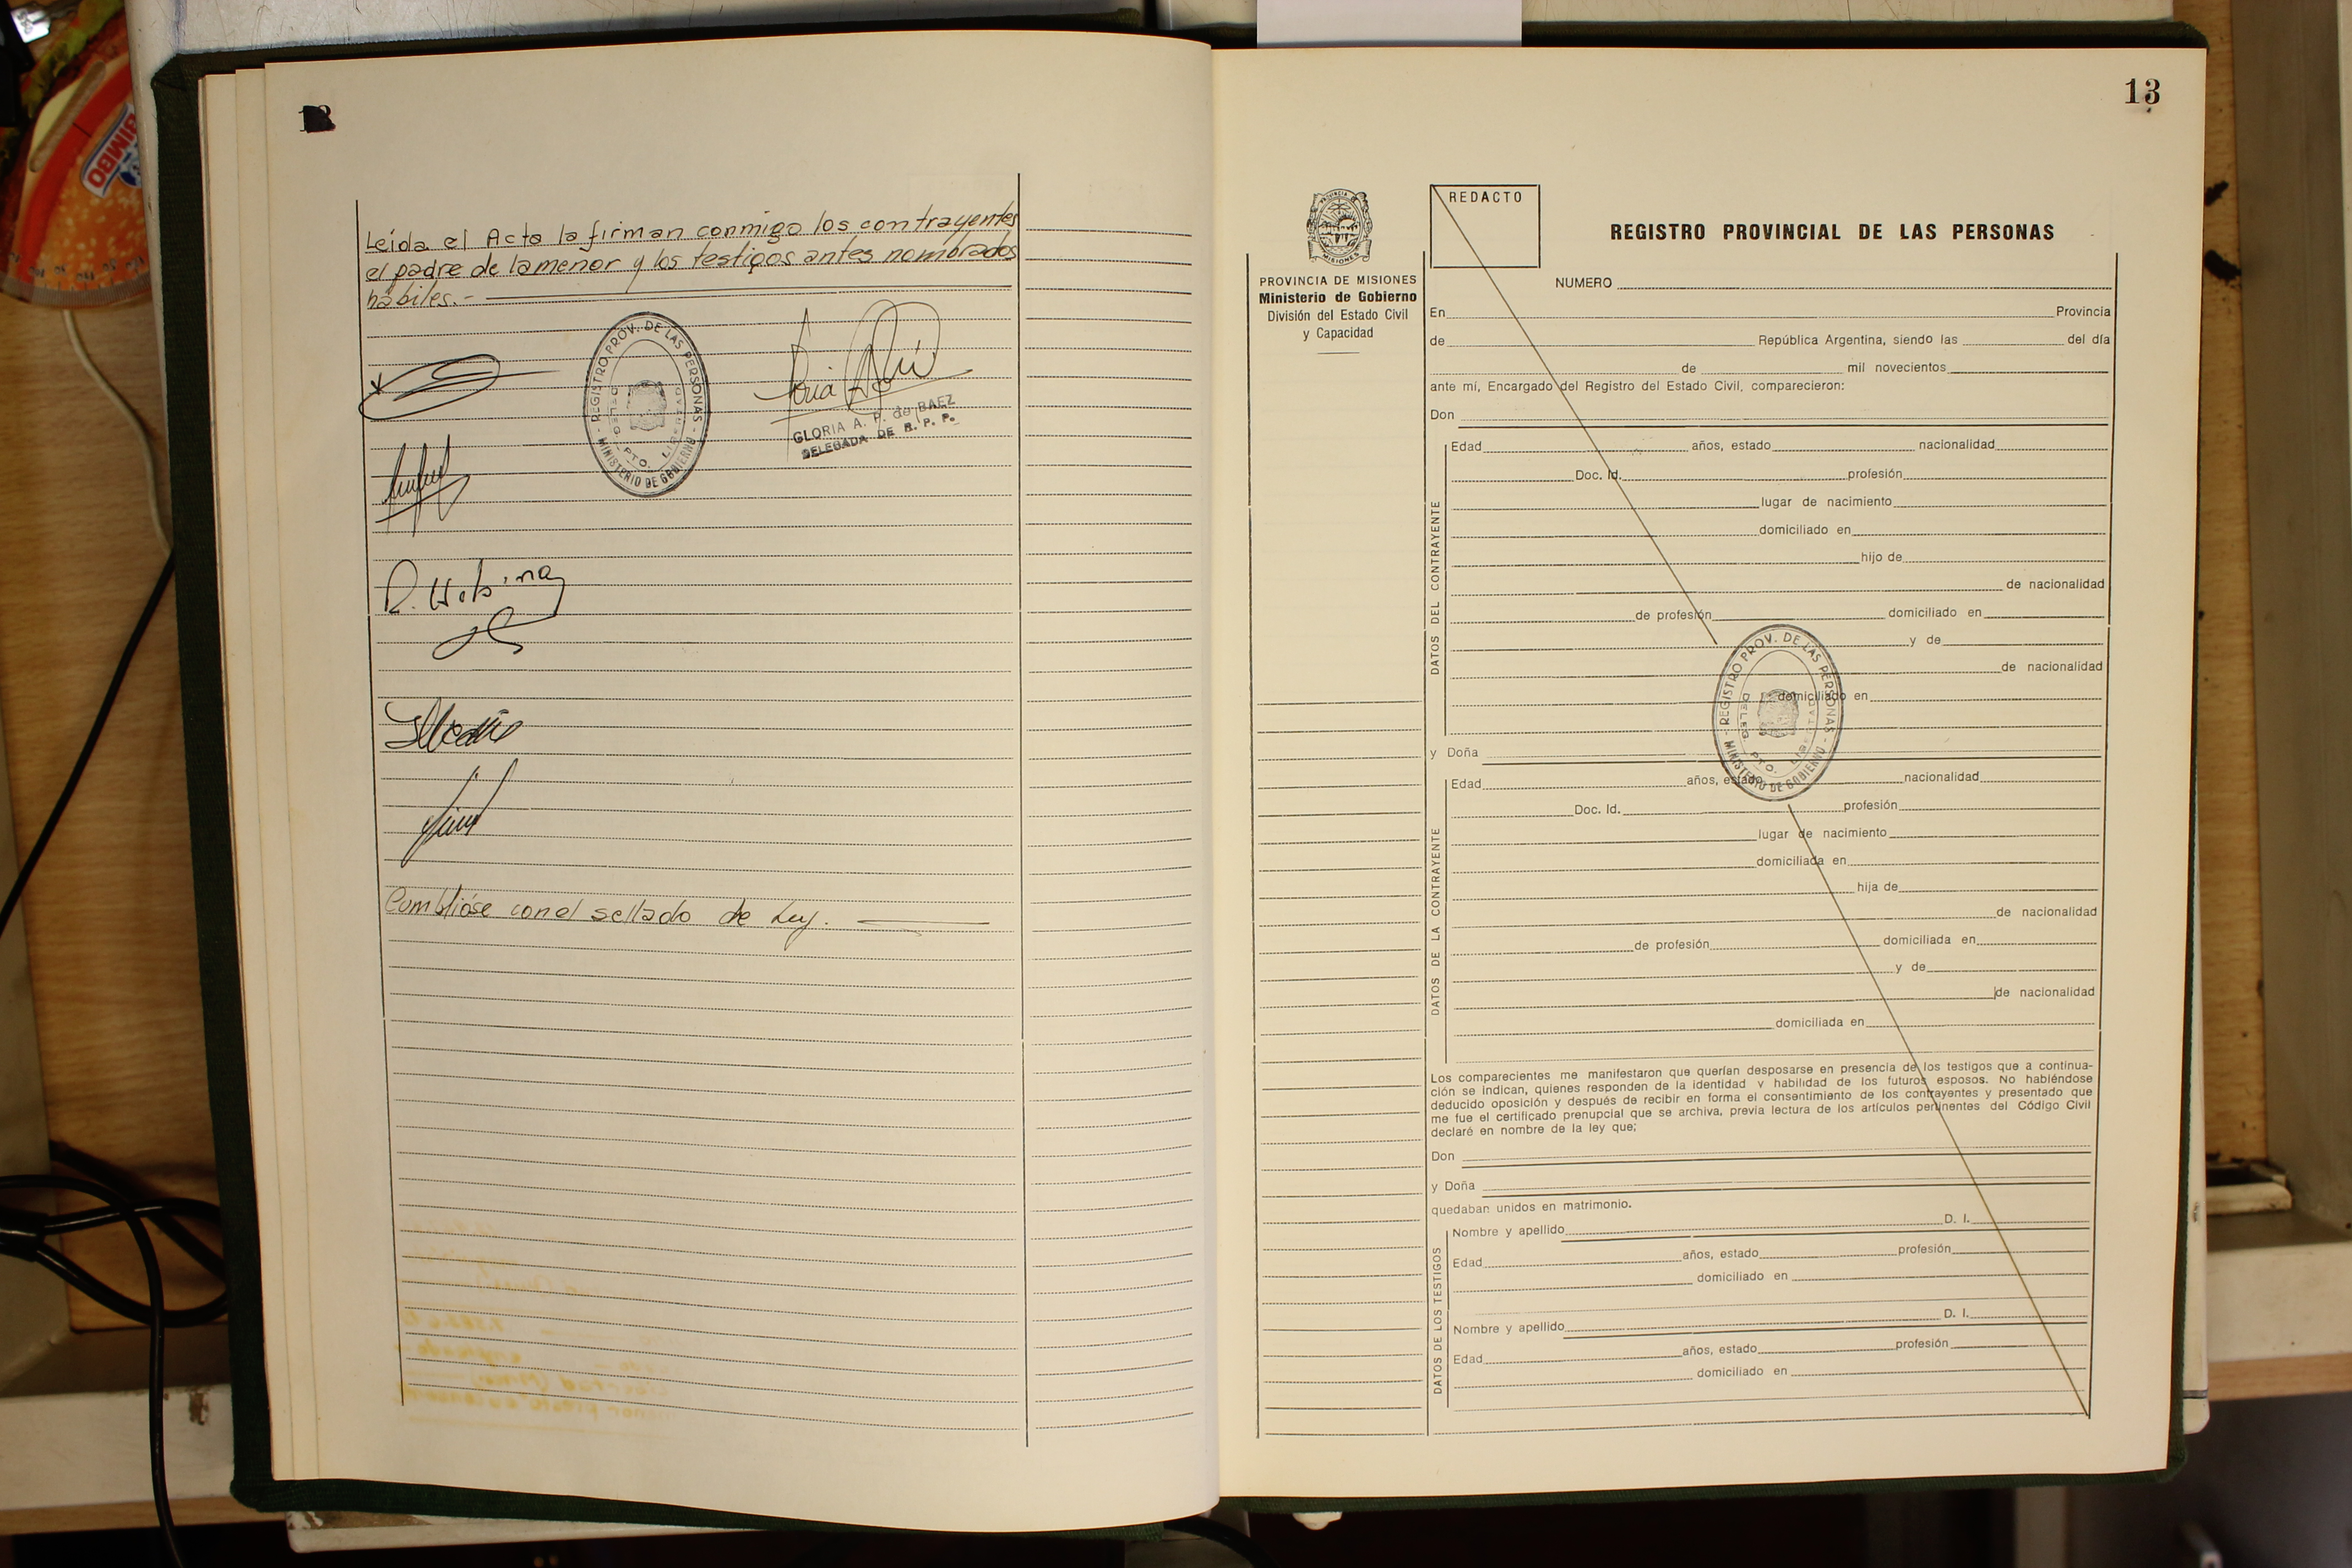 BIMBO
Leída el Acta la firman conmigo los contrayentes
el padre de la menor y los testigos antes nombrados
hábiles.-
REGISTRO PROV. DE LAS PERSONAS
MINISTERIO DE GOBIERNO
DELEG. PTO. LIBERTAD
GLORIA A. P. de BAEZ
DELEGADA DE R. P. P.
Cumblióse con el sellado de Ley.
13
PROVINCIA DE MISIONES
Ministerio de Gobierno
División del Estado Civil
y Capacidad
REDACTO
REGISTRO PROVINCIAL DE LAS PERSONAS
NUMERO
En Provincia
de República Argentina, siendo las del día
de mil novecientos
ante mí, Encargado del Registro del Estado Civil, comparecieron:
Don
DATOS DEL CONTRAYENTE
Edad años, estado nacionalidad
Doc. Id. profesión
lugar de nacimiento
domiciliado en
hijo de
de nacionalidad
de profesión domiciliado en
y de
de nacionalidad
domiciliado en
REGISTRO PROV. DE LAS PERSONAS
MINISTERIO DE GOBIERNO
DELEG. PTO. LIBERTAD
y Doña
DATOS DE LA CONTRAYENTE
Edad años, estado nacionalidad
Doc. Id. profesión
lugar de nacimiento
domiciliada en
hija de
de nacionalidad
de profesión domiciliada en
y de
de nacionalidad
domiciliada en
Los comparecientes me manifestaron que querían desposarse en presencia de los testigos que a continua-
ción se indican, quienes responden de la identidad y habilidad de los futuros esposos. No habiéndose
deducido oposición y después de recibir en forma el consentimiento de los contrayentes y presentado que
me fue el certificado prenupcial que se archiva, previa lectura de los artículos pertinentes del Código Civil
declaré en nombre de la ley que;
Don
y Doña
quedaban unidos en matrimonio.
DATOS DE LOS TESTIGOS
Nombre y apellido D. I.
Edad años, estado profesión
domiciliado en
Nombre y apellido D. I.
Edad años, estado profesión
domiciliado en